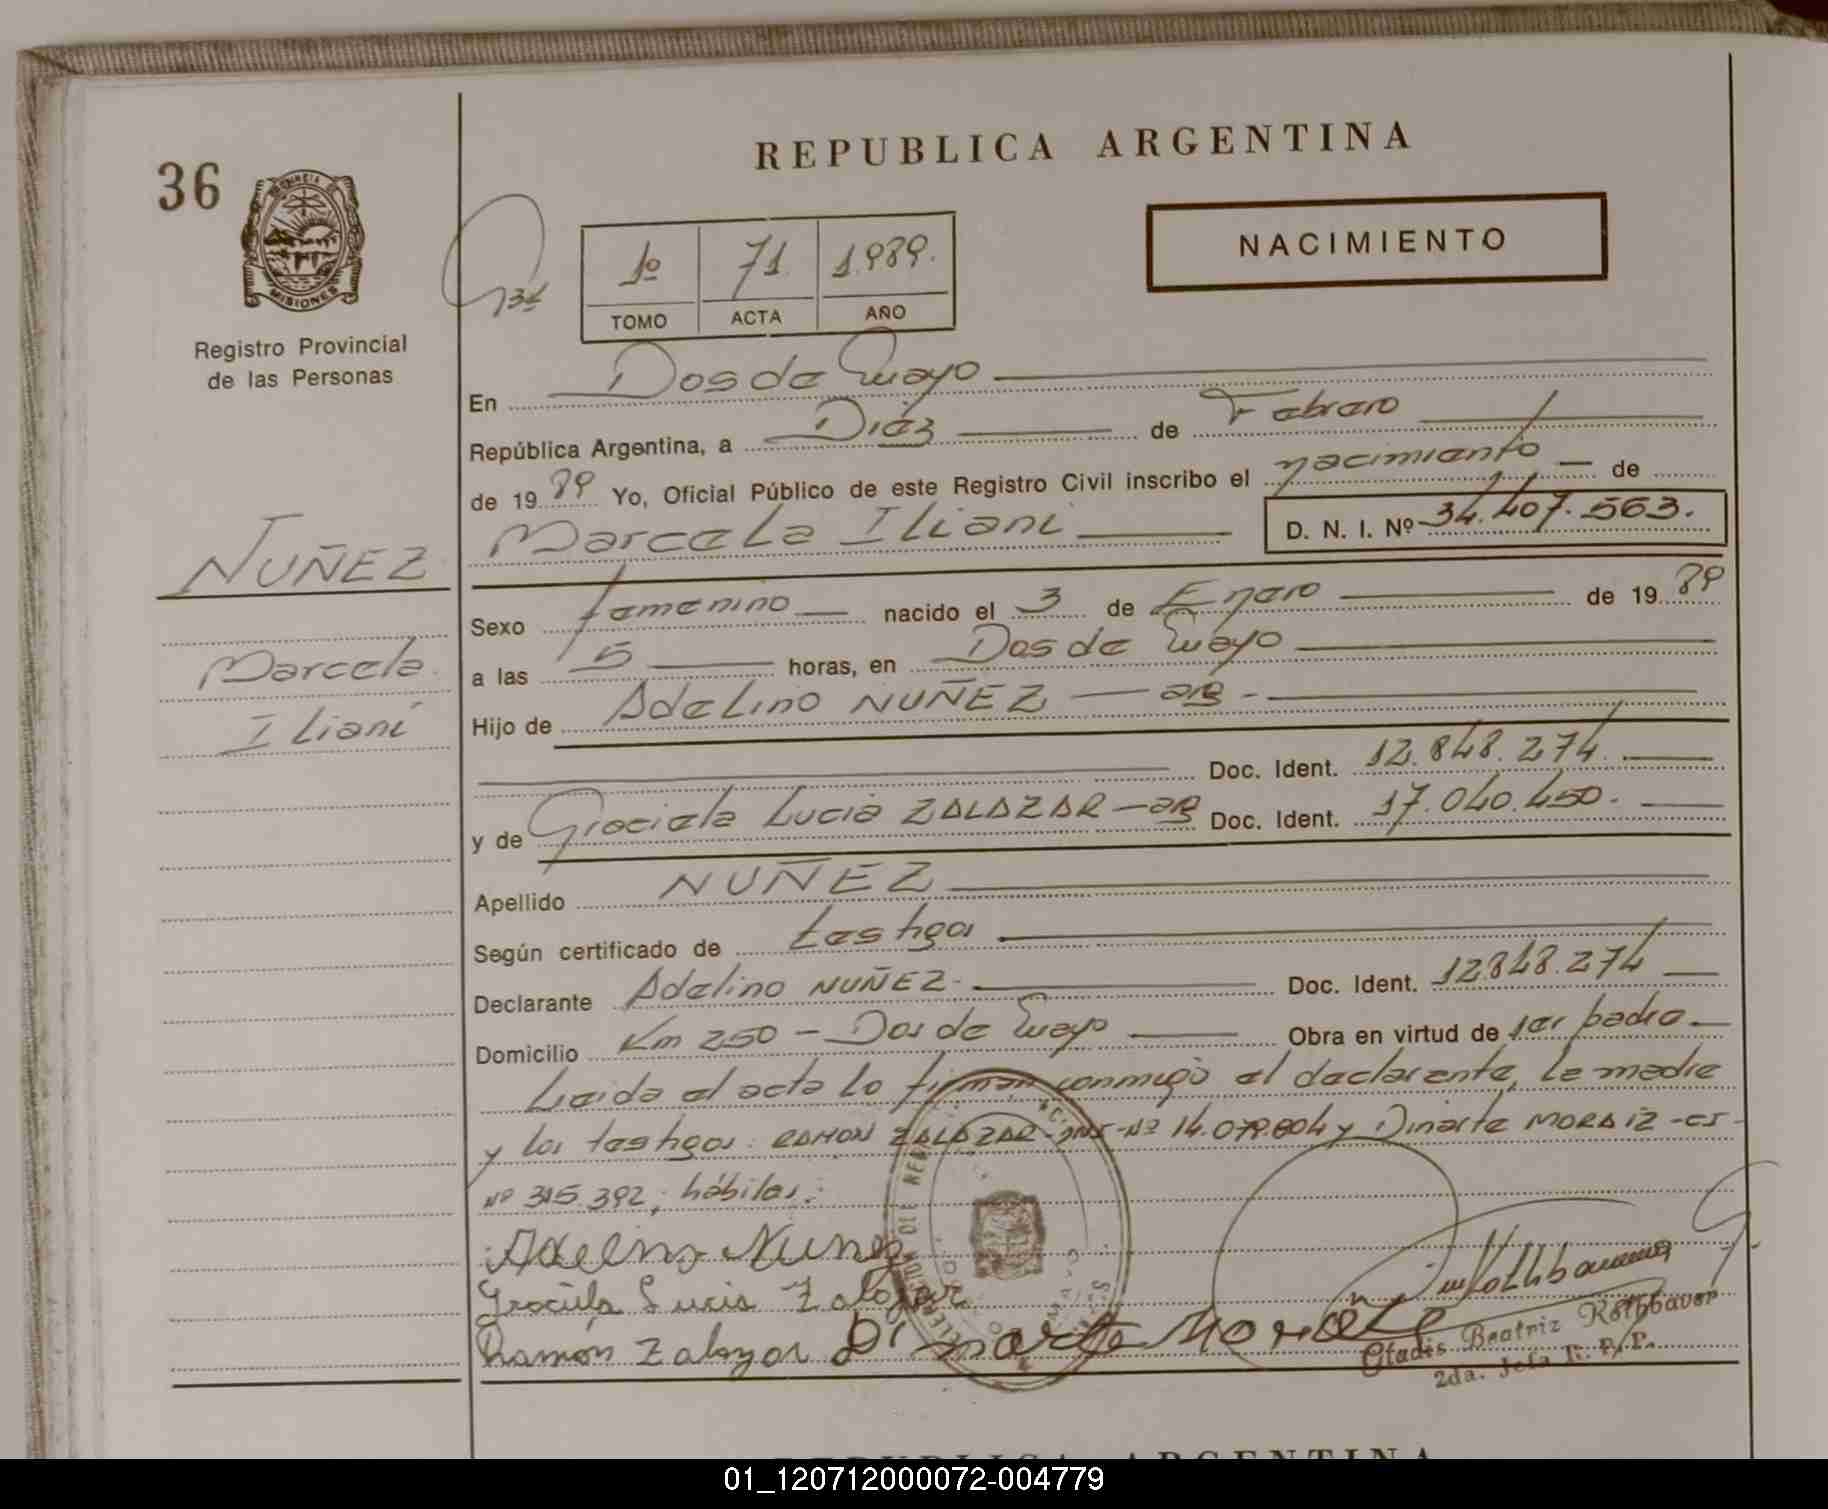 REPUBLICA ARGENTINA
36
PROVINCIA DE
MISIONES
Registro Provincial
de las Personas
NACIMIENTO
1º 71 1.989.
TOMO ACTA AÑO
En Dos de Mayo
República Argentina, a Diéz de Febrero
de 1989 Yo, Oficial Público de este Registro Civil inscribo el nacimiento de
Marcela Iliani D. N. I. Nº 34.407.563.
NUÑEZ
Marcela
Iliani
Sexo femenino nacido el 3 de Enero de 1989
a las 5 horas, en Dos de Mayo
Hijo de Adelino NUÑEZ — arg -
Doc. Ident. 12.848.274.
y de Graciela Lucia ZALAZAR — arg Doc. Ident. 17.040.450.
Apellido NUÑEZ
Según certificado de testigos
Declarante Adelino NUÑEZ- Doc. Ident. 12.848.274
Domicilio Km 250 - Dos de Mayo Obra en virtud de ser padre
Leida el acta lo firman conmigo el declarante, la madre
y los testigos: RAMON ZALAZAR - DNI - Nº 14.079.804 y Dinarte MORAIZ - CI -
Nº 315.392; hábiles.
Adelino Nunez
Graciela Lucia Zalazar
Ramón Zalazar Dinarte Moraiz
Gladis Beatriz Rothbauer
2da. Jefa R. P. P.
REPUBLICA ARGENTINA
01_120712000072-004779